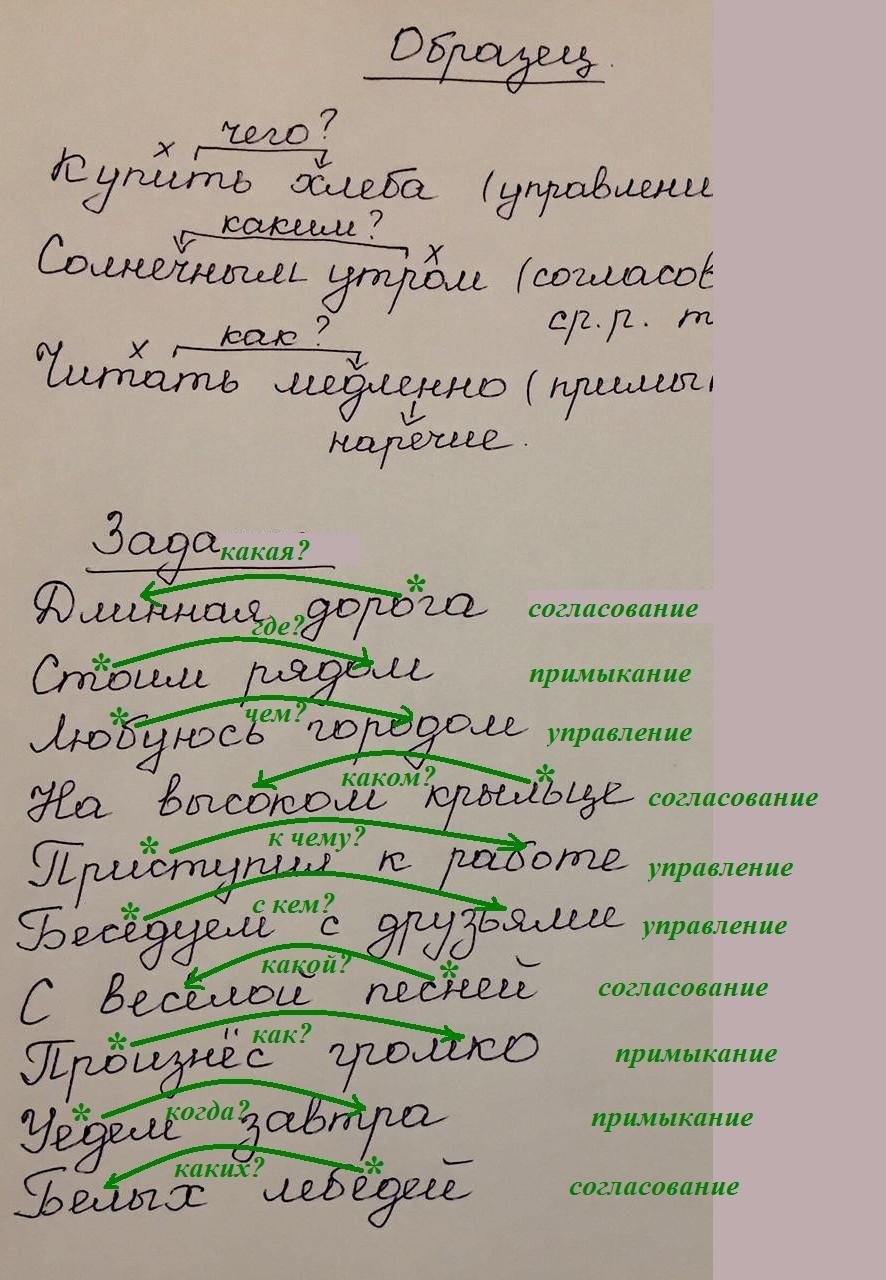 Образец.
чего?
х
Купить хлеба (управлени
каким?
х
Солнечным утром (согласов
ср.р. т
х как?
Читать медленно (примык
наречие.
Зада
какая?
*
Длинная дорога согласование
где?
*
Стоим рядом примыкание
* чем?
Любуюсь городом управление
каком? *
На высоком крыльце согласование
* к чему?
Приступил к работе управление
* с кем?
Беседуем с друзьями управление
какой? *
С весёлой песней согласование
* как?
Произнёс громко примыкание
* когда?
Уедем завтра примыкание
каких? *
Белых лебедей согласование